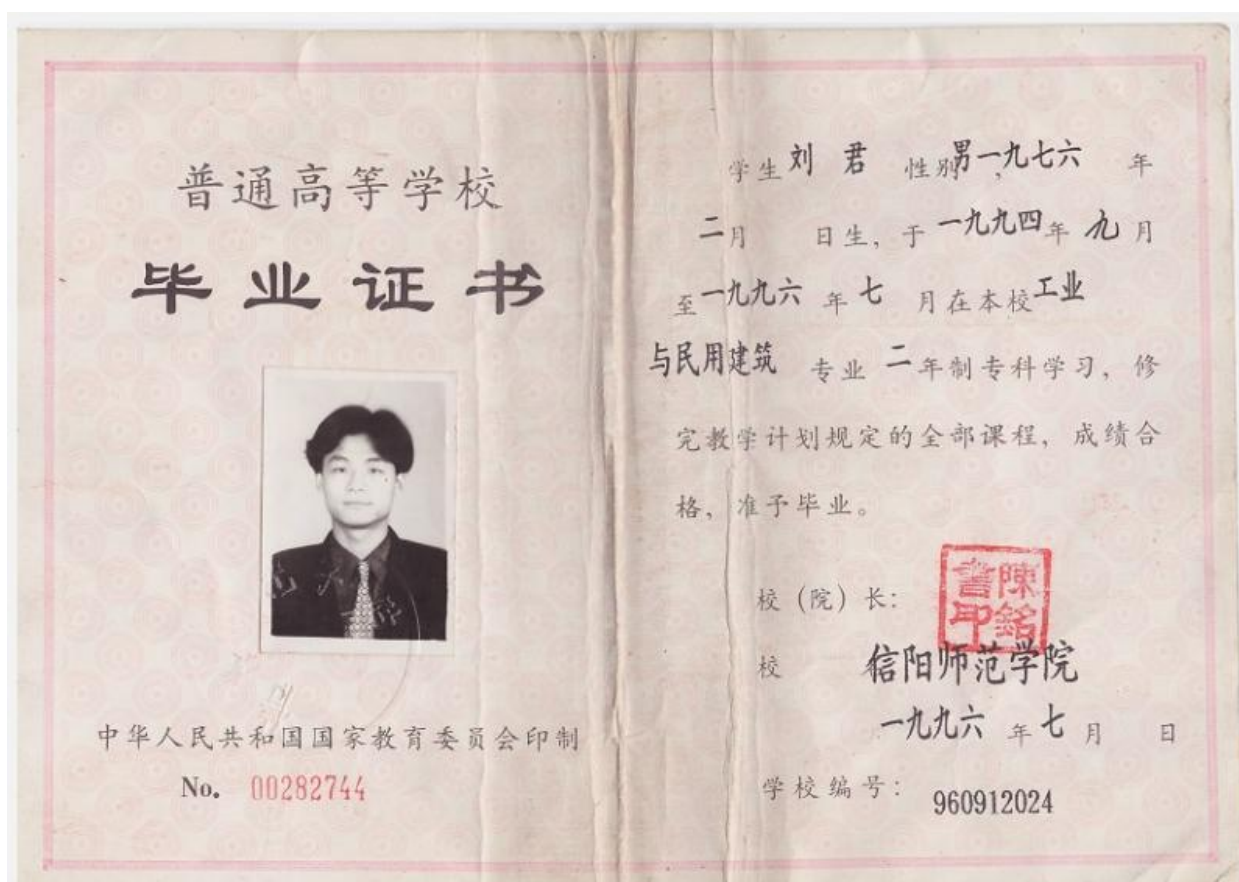 普通高等学校
毕业证书
中华人民共和国国家教育委员会印制
No. 00282744
学生 刘 君 性别男,一九七六 年
二月 日生，于一九九四年九月
至一九九六年七月在本校工业
与民用建筑 专业 二年制专科学习，修
完教学计划规定的全部课程，成绩合
格，准予毕业。
校（院）长：
陳銘
書印
校 信阳师范学院
一九九六年七月 日
学校编号： 960912024